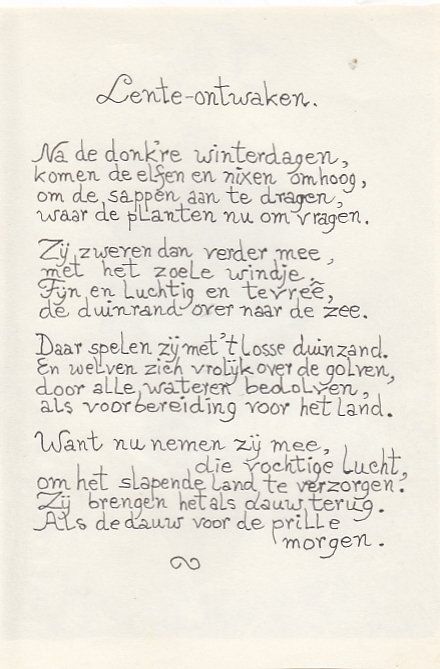 Lente-ontwaken.
Na de donk're winterdagen,
komen de elfen en nixen omhoog,
om de sappen aan te dragen,
waar de planten nu om vragen.
Zij zweren dan verder mee,
met het zoele windje.
Fijn en luchtig en tevreê,
de duinrand over naar de zee.
Daar spelen zij met 't losse duinzand.
En welven zich vrolijk over de golven,
door alle wateren bedolven,
als voorbereiding voor het land.
Want nu nemen zij mee,
die vochtige lucht,
om het slapende land te verzorgen.
Zij brengen het als dauw terug.
Als de dauw voor de prille
morgen.